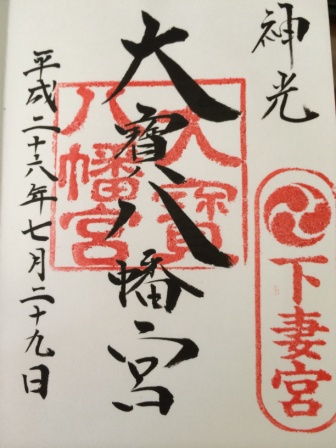 神光
下妻宮
大寳八幡宮
大寳
八幡宮
平成二十六年七月二十九日